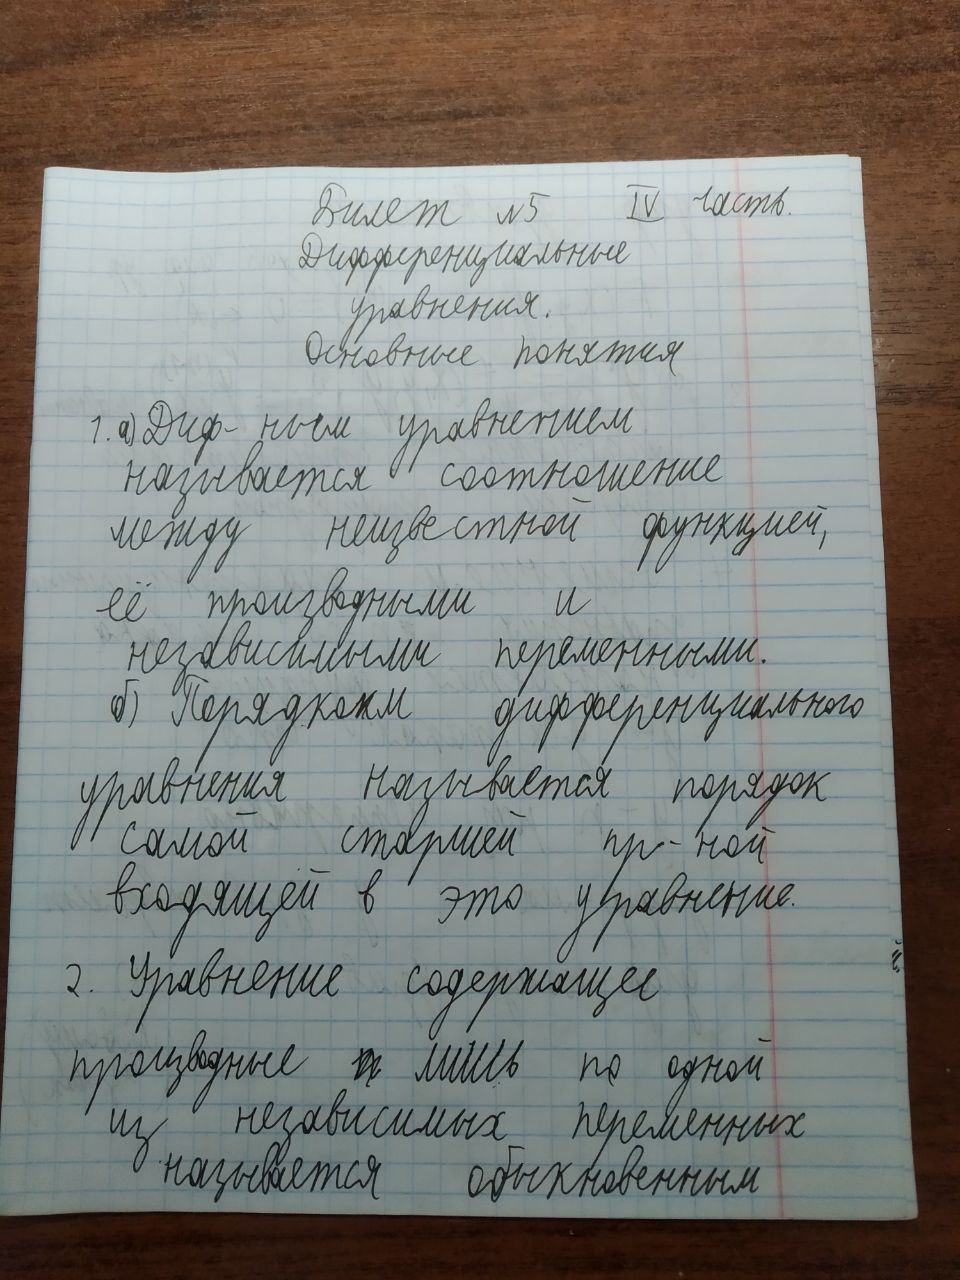 Билет №5 IV часть.
Дифференциальные
уравнения.
Основные понятия
1. а) Диф-ным уравнением
называется соотношение
между неизвестной функцией,
её производными и
независимыми переменными.
б) Порядком дифференциального
уравнения называется порядок
самой старшей пр-ной
входящей в это уравнение.
2. Уравнение содержащее
производные лишь по одной
из независимых переменных
называется обыкновенным